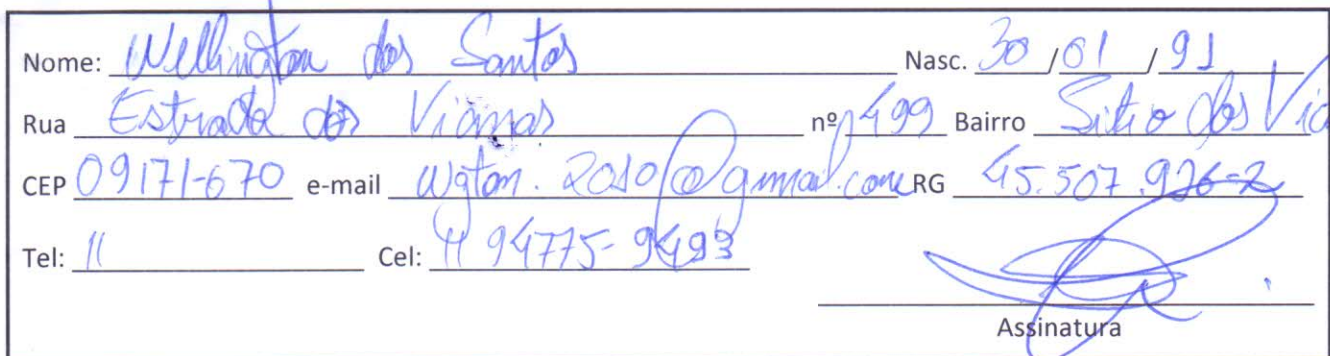 Nome: Wellington dos Santos Nasc. 30/01/91
Rua Estrada dos Vianas nº 499 Bairro Sitio dos Via
CEP 09171-670 e-mail wgton.2010@gmail.com RG 45.507.926-2
Tel: 11 Cel: 11 94775-9493
Assinatura